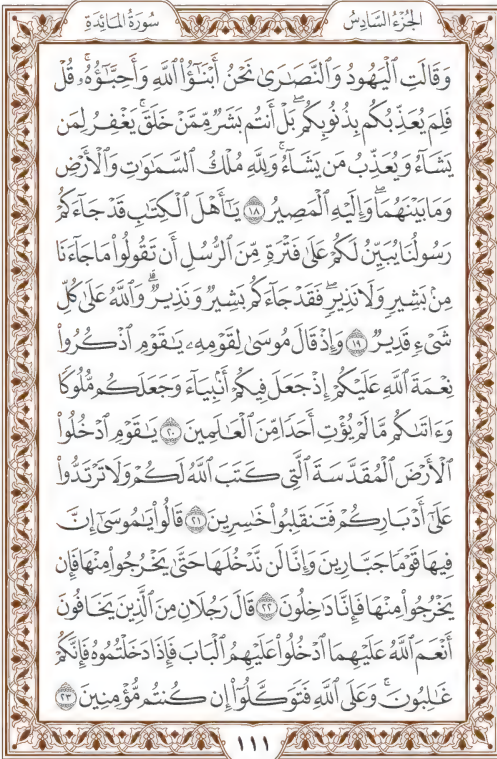 سُورَةُ المَائِدَةِ
الجُزْءُ السَّادِسُ
وَقَالَتِ ٱلۡيَهُودُ وَٱلنَّصَٰرَىٰ نَحۡنُ أَبۡنَٰٓؤُاْ ٱللَّهِ وَأَحِبَّٰٓؤُهُۥۚ قُلۡ
فَلِمَ يُعَذِّبُكُم بِذُنُوبِكُمۖ بَلۡ أَنتُم بَشَرٞ مِّمَّنۡ خَلَقَۚ يَغۡفِرُ لِمَن
يَشَآءُ وَيُعَذِّبُ مَن يَشَآءُۚ وَلِلَّهِ مُلۡكُ ٱلسَّمَٰوَٰتِ وَٱلۡأَرۡضِ
وَمَا بَيۡنَهُمَاۖ وَإِلَيۡهِ ٱلۡمَصِيرُ ١٨ يَٰٓأَهۡلَ ٱلۡكِتَٰبِ قَدۡ جَآءَكُمۡ
رَسُولُنَا يُبَيِّنُ لَكُمۡ عَلَىٰ فَتۡرَةٖ مِّنَ ٱلرُّسُلِ أَن تَقُولُواْ مَا جَآءَنَا
مِنۢ بَشِيرٖ وَلَا نَذِيرٖۖ فَقَدۡ جَآءَكُم بَشِيرٞ وَنَذِيرٞۗ وَٱللَّهُ عَلَىٰ كُلِّ
شَيۡءٖ قَدِيرٞ ١٩ وَإِذۡ قَالَ مُوسَىٰ لِقَوۡمِهِۦ يَٰقَوۡمِ ٱذۡكُرُواْ
نِعۡمَةَ ٱللَّهِ عَلَيۡكُمۡ إِذۡ جَعَلَ فِيكُمۡ أَنۢبِيَآءَ وَجَعَلَكُم مُّلُوكٗا
وَءَاتَىٰكُم مَّا لَمۡ يُؤۡتِ أَحَدٗا مِّنَ ٱلۡعَٰلَمِينَ ٢٠ يَٰقَوۡمِ ٱدۡخُلُواْ
ٱلۡأَرۡضَ ٱلۡمُقَدَّسَةَ ٱلَّتِي كَتَبَ ٱللَّهُ لَكُمۡ وَلَا تَرۡتَدُّواْ
عَلَىٰٓ أَدۡبَارِكُمۡ فَتَنقَلِبُواْ خَٰسِرِينَ ٢١ قَالُواْ يَٰمُوسَىٰٓ إِنَّ
فِيهَا قَوۡمٗا جَبَّارِينَ وَإِنَّا لَن نَّدۡخُلَهَا حَتَّىٰ يَخۡرُجُواْ مِنۡهَا فَإِن
يَخۡرُجُواْ مِنۡهَا فَإِنَّا دَٰخِلُونَ ٢٢ قَالَ رَجُلَانِ مِنَ ٱلَّذِينَ يَخَافُونَ
أَنۡعَمَ ٱللَّهُ عَلَيۡهِمَا ٱدۡخُلُواْ عَلَيۡهِمُ ٱلۡبَابَ فَإِذَا دَخَلۡتُمُوهُ فَإِنَّكُمۡ
غَٰلِبُونَۚ وَعَلَى ٱللَّهِ فَتَوَكَّلُوٓاْ إِن كُنتُم مُّؤۡمِنِينَ ٢٣
١١١